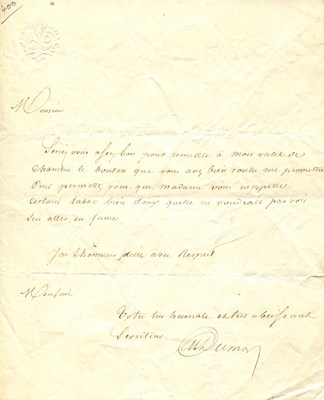 400
Monsieur
Serez vous assez bon pour remettre à mon valet de
chambre le bouton que vous avez bien voulu me promettre
permettez vous que madame vous rappelle
certain tabac bien doux qu'elle ne voudrait pas voir
s'en aller en fumée
J'ai l'honneur d'être avec Respect
Monsieur
Votre très humble et très obéissant
Serviteur
Dumas